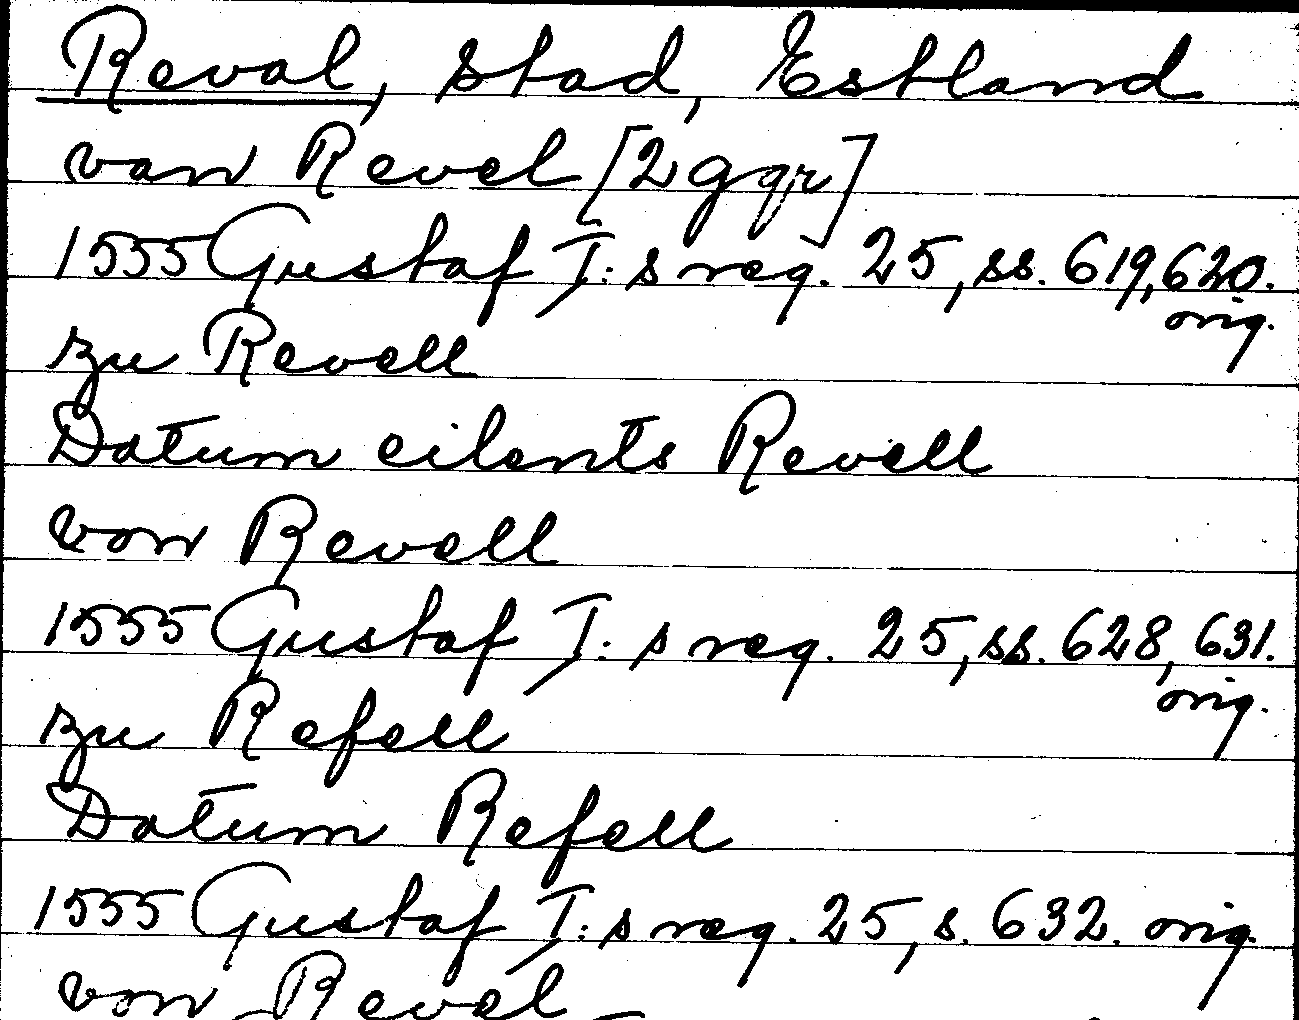 Reval, stad, Estland
van Revel [2 ggr]
1555 Gustaf I:s reg. 25, ss. 619, 620.
orig.
zu Revell
Datum eilents Revell
von Revell
1555 Gustaf I:s reg. 25, ss. 628, 631.
orig.
zu Refell
Datum Refell
1555 Gustaf I:s reg. 25, s. 632. orig.
von Revel